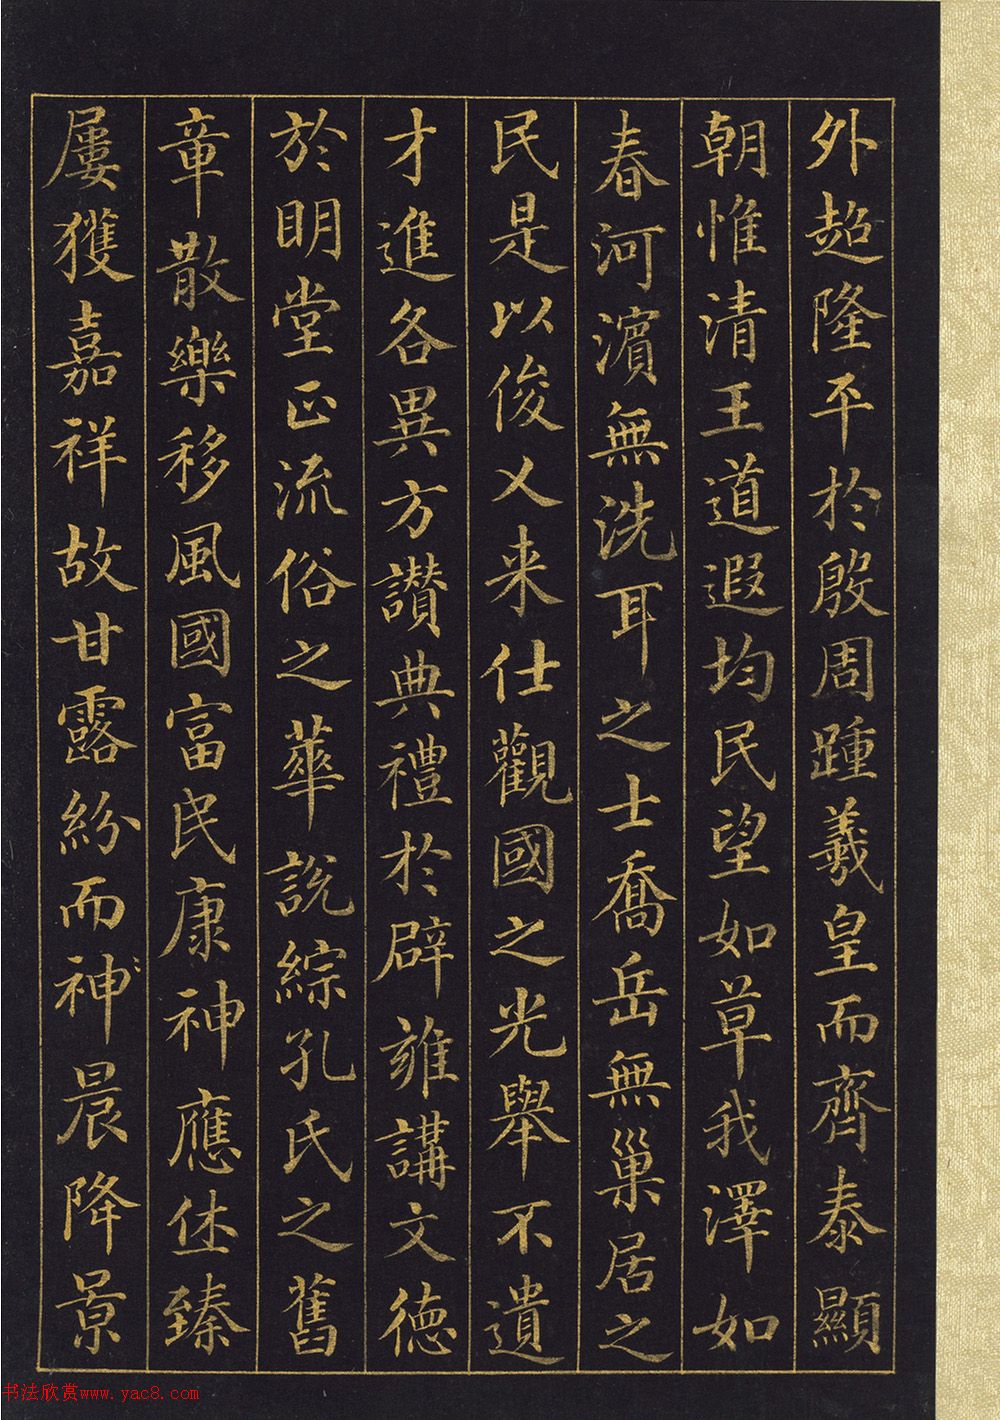 外超隆平於殷周踵羲皇而齊泰顯
朝惟清王道遐均民望如草我澤如
春河濱無洗耳之士喬岳無巢居之
民是以俊乂来仕觀國之光舉不遺
才進各異方讚典禮於辟雍講文德
於明堂正流俗之華說綜孔氏之舊
章散樂移風國富民康神應休臻
屢獲嘉祥故甘露紛而神晨降景
书法欣赏www.yac8.com